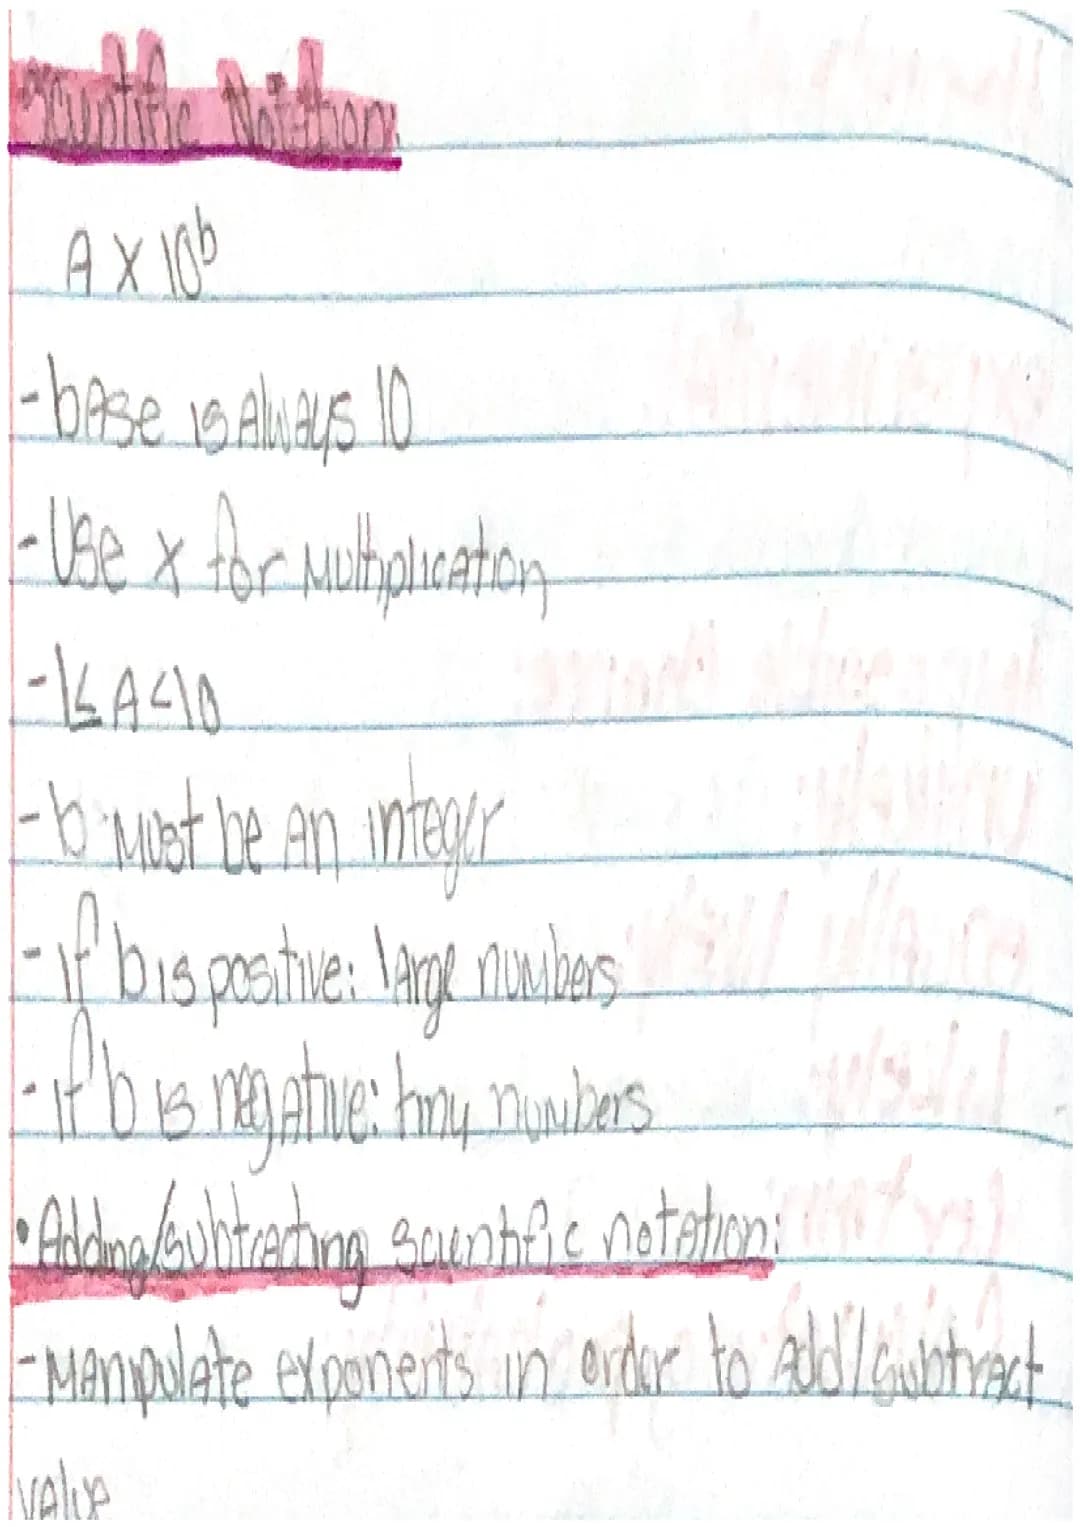 Scientific Notation:
A x 10^b
-base is Always 10
-Use x for Multiplication
-1≤A<10
-b Must be An integer
-if b is positive: large numbers
-if b is negative: tiny numbers
•Adding/subtracting scientific notation:
-Manipulate exponents in order to Add/subtract
value